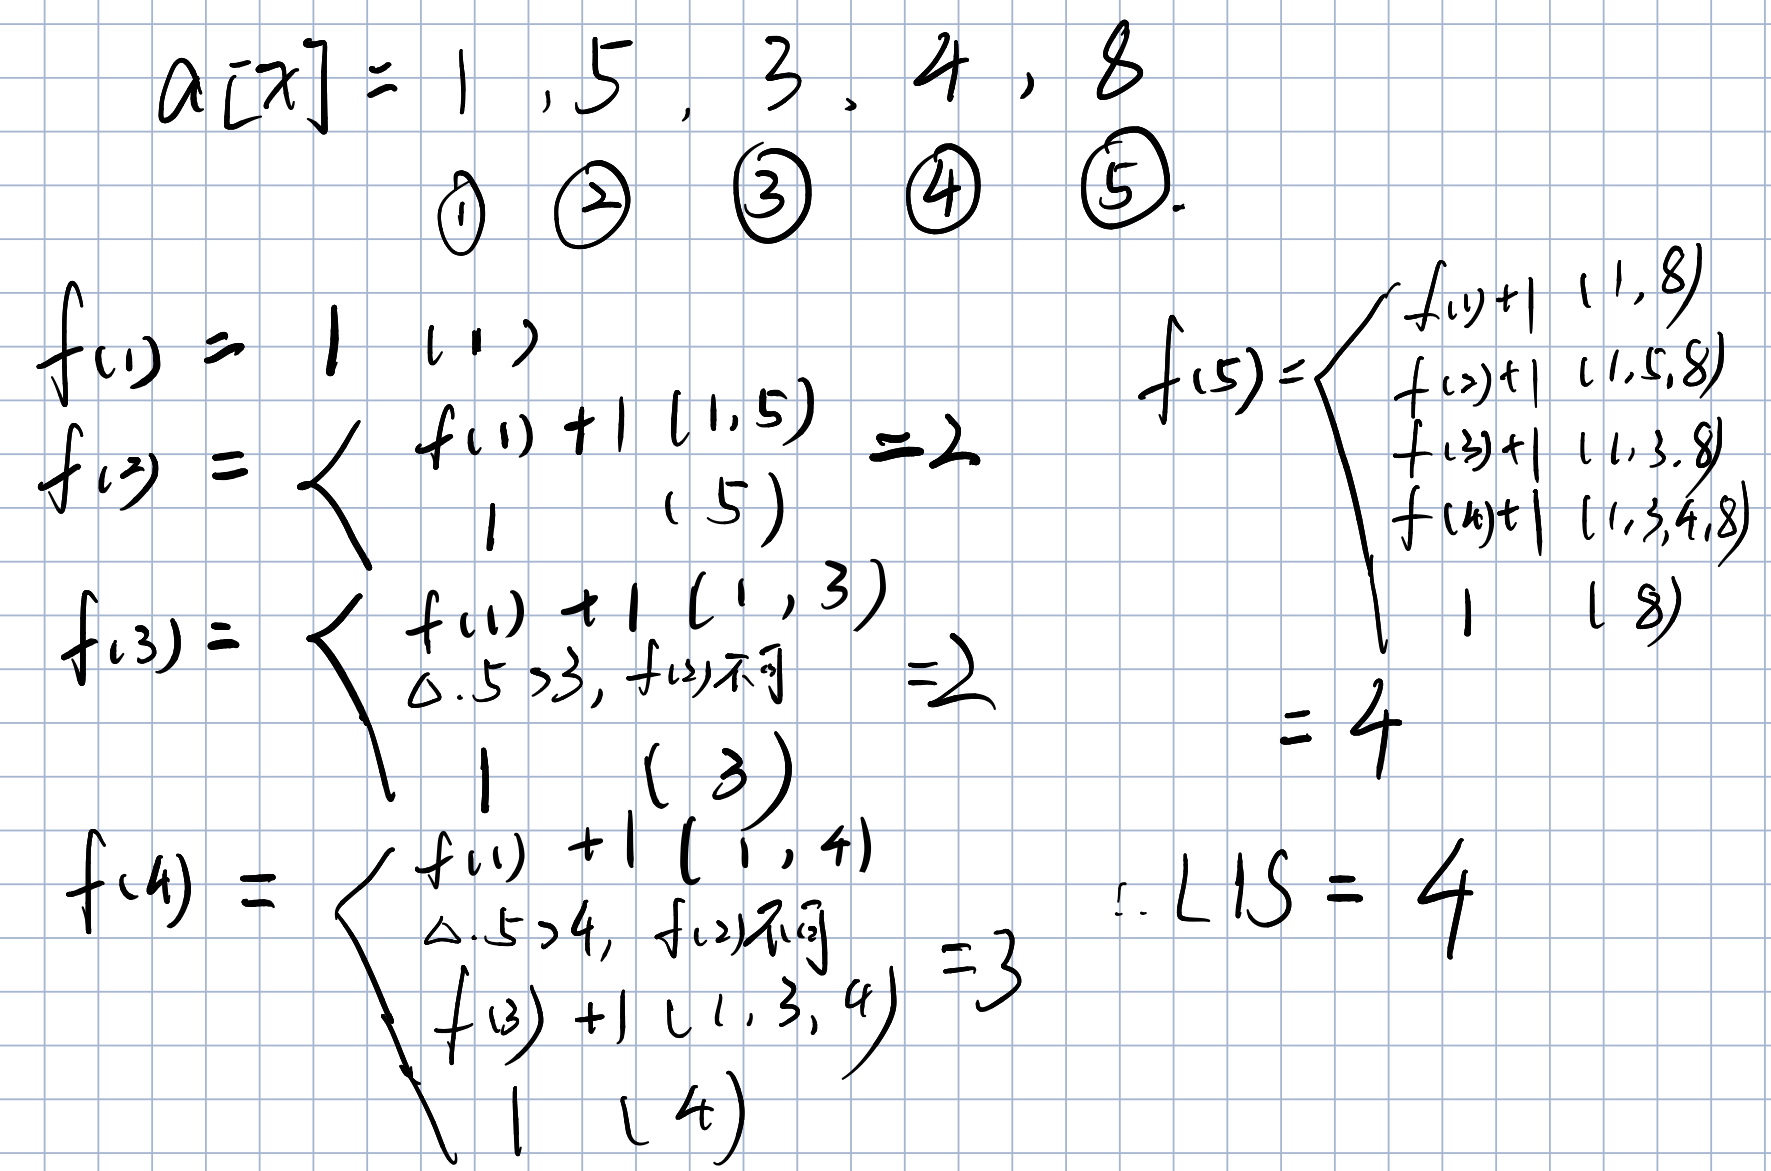 a[x] = 1 , 5 , 3 、 4 , 8
① ② ③ ④ ⑤.
f(1) = 1 (1)
f(2) =
f(1) + 1 (1,5)
1 (5)
= 2
f(3) =
f(1) + 1 (1,3)
△.5>3, f(2)不可
1 (3)
= 2
f(4) =
f(1) + 1 (1,4)
△.5>4, f(2)不可
f(3) + 1 (1,3,4)
1 (4)
= 3
f(5) =
f(1)+1 (1,8)
f(2)+1 (1,5,8)
f(3)+1 (1,3,8)
f(4)+1 (1,3,4,8)
1 (8)
= 4
∴ LIS = 4